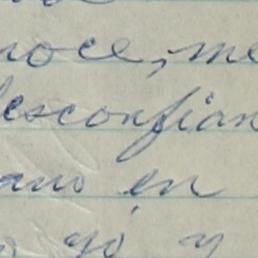 noce, me
desconfian
ano en
yo y